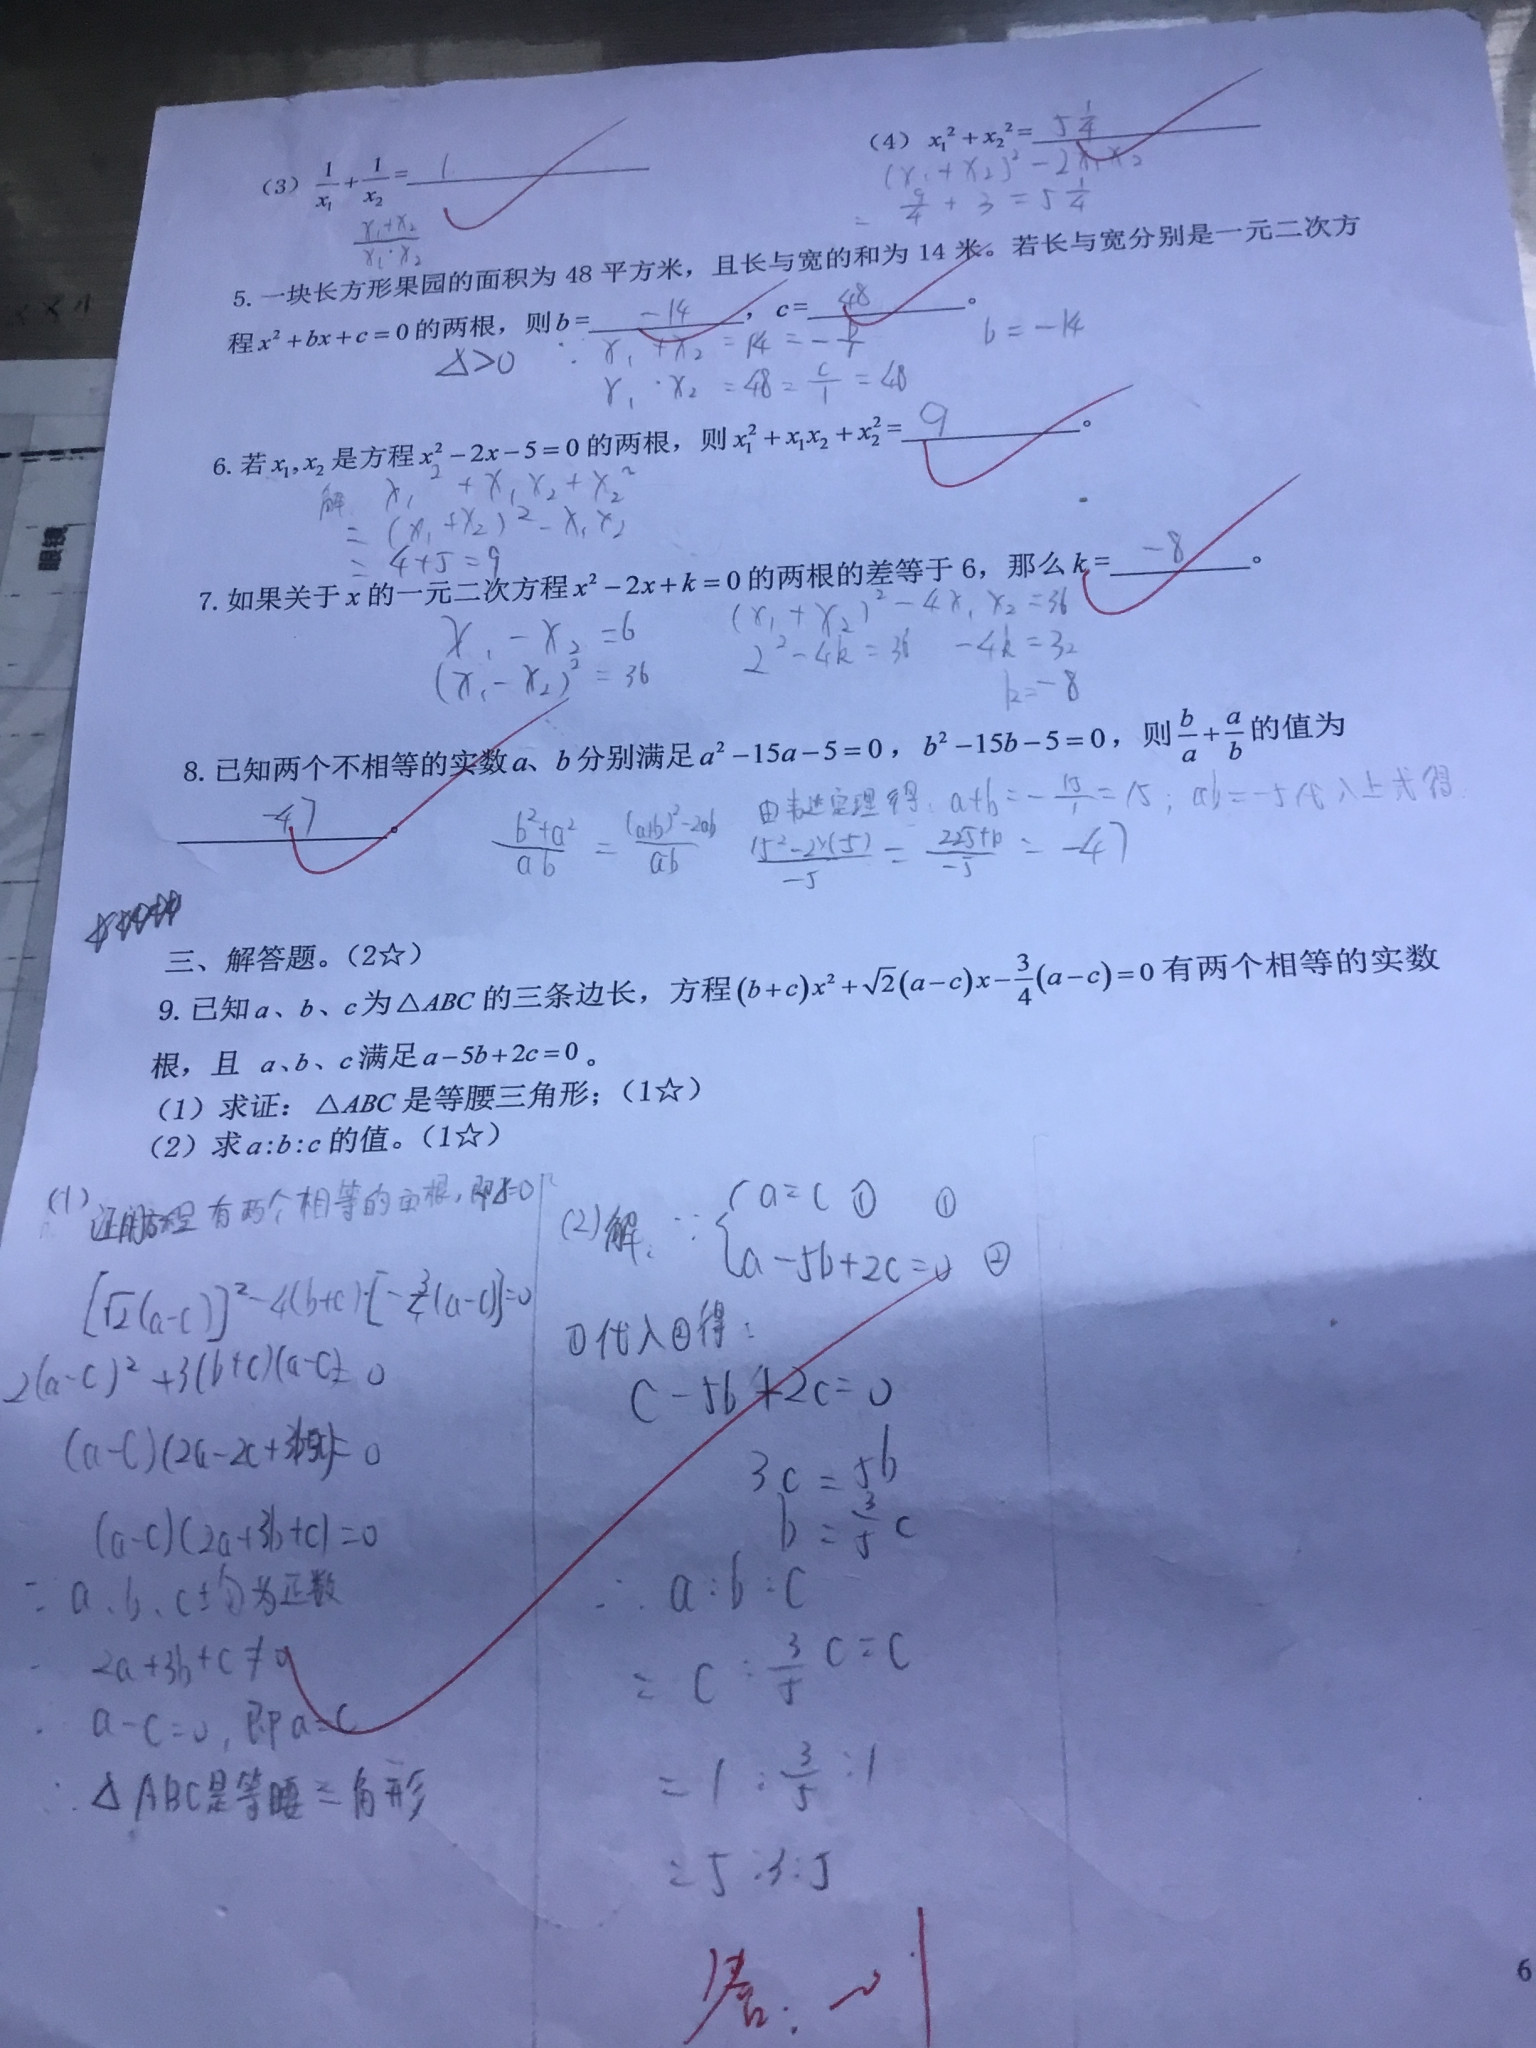 (3) 1/x₁ + 1/x₂ = 1
(x₁+x₂)/(x₁·x₂)
(4) x₁² + x₂² = 5 1/4
(x₁+x₂)² - 2x₁x₂
= 9/4 + 3 = 5 1/4
5. 一块长方形果园的面积为 48 平方米，且长与宽的和为 14 米。若长与宽分别是一元二次方
程 x² + bx + c = 0 的两根，则 b = -14 ，c = 48 。
Δ>0 ∵ x₁ + x₂ = 14 = -b/1 b = -14
x₁ · x₂ = 48 = c/1 = 48
6. 若 x₁, x₂ 是方程 x² - 2x - 5 = 0 的两根，则 x₁² + x₁x₂ + x₂² = 9 。
解: x₁² + x₁x₂ + x₂²
= (x₁+x₂)² - x₁x₂
= 4+5=9
7. 如果关于 x 的一元二次方程 x² - 2x + k = 0 的两根的差等于 6，那么 k = -8 。
x₁ - x₂ = 6 (x₁+x₂)² - 4x₁x₂ = 36
(x₁ - x₂)² = 36 2² - 4k = 36 -4k = 32
k = -8
8. 已知两个不相等的实数 a、b 分别满足 a² - 15a - 5 = 0，b² - 15b - 5 = 0，则 b/a + a/b 的值为
-47 。
由韦达定理得: a+b = -15/1 = 15; ab = -5代入上式得
(b²+a²)/ab = ((a+b)²-2ab)/ab (15²-2×(-5))/-5 = (225+10)/-5 = -47
三、解答题。（2☆）
9. 已知 a、b、c 为△ABC 的三条边长，方程 (b+c)x² + √2(a-c)x - 3/4(a-c) = 0 有两个相等的实数
根，且 a、b、c 满足 a - 5b + 2c = 0 。
（1）求证：△ABC 是等腰三角形；（1☆）
（2）求 a:b:c 的值。（1☆）
(1) 证明方程有两个相等的实根, 即Δ=0
[√2(a-c)]² - 4(b+c)·[-3/4(a-c)]=0
2(a-c)² + 3(b+c)(a-c) = 0
(a-c)(2a-2c+3b+3c)= 0
(a-c)(2a+3b+c)=0
∵ a、b、c均为正数
∴ 2a+3b+c ≠ 0
∴ a-c=0, 即a=c
∴ Δ ABC是等腰三角形
(2)解: ∵ { a=c ① ①
a-5b+2c=0 ②
①代入②得:
c - 5b + 2c = 0
3c = 5b
b = 3/5 c
∴ a:b:c
= c : 3/5 c : c
= 1 : 3/5 : 1
= 5:3:5
答:
6